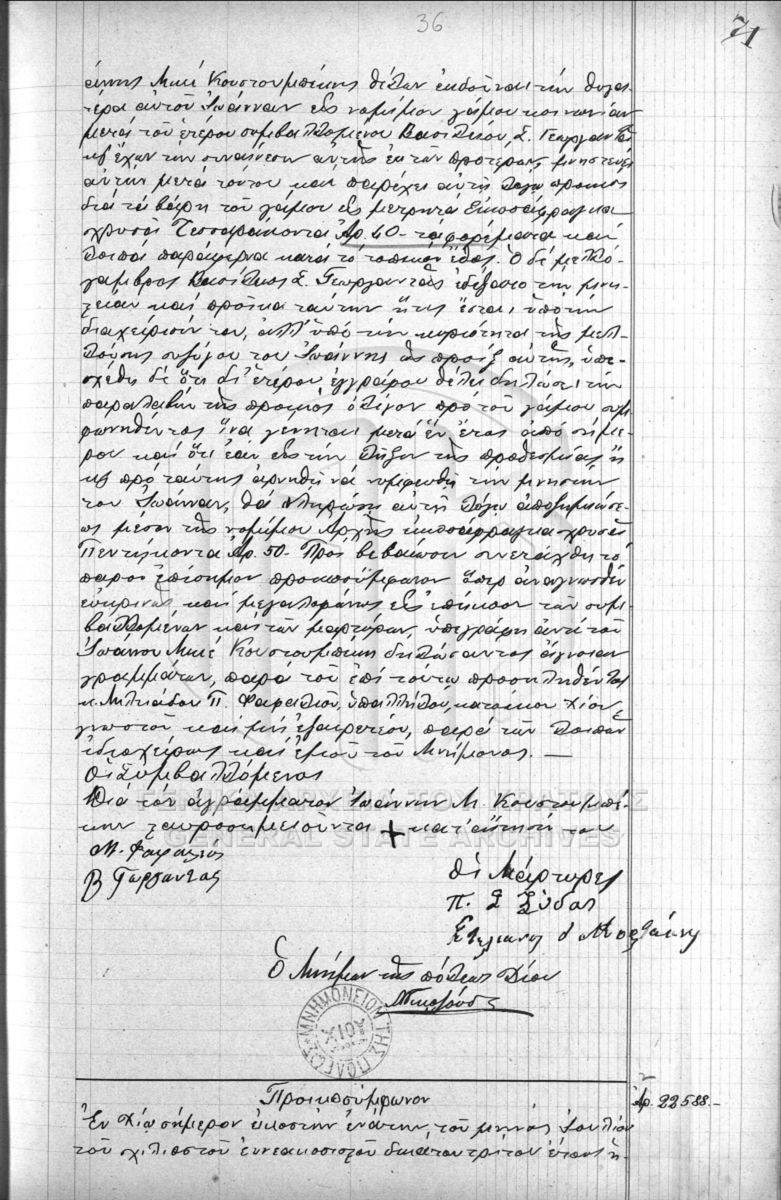 36
71
άννης Μικέ Κουστουμπέκης θέλων εκδούναι την θυγα-
τέρα αυτού Ιωάνναν εις νομίμου γάμου κοινωνίαν
μετά του ετέρου συμβαλλομένου Βασιλείου Σ. Γεωργαντά
κ' έχων την συναίνεσιν αυτής εκ των προτέρων, μνηστεύει
αυτήν μετά τούτου και παρέχει αυτή λόγω προικός
διά τα βάρη του γάμου εις μετρητά Εικοσάφραγκα
χρυσά Τεσσαράκοντα Αρ. 40 - τα φορέματα και
λοιπά παράφερνα κατά το τοπικόν έθος. Ο δε μελλό-
γαμβρος Βασίλειος Σ. Γεωργαντάς εδέξατο την μνη-
στείαν και προίκα ταύτην ήτις έσται υπό την
διαχείρισίν του, αλλ' υπό την κυριότητα της μελ-
λούσης συζύγου του Ιωάννης ως προίξ αυτής, υπε-
σχέθη δε ότι δι' ετέρου εγγράφου θέλει δηλώσει την
παραλαβήν της προικός ολίγον προ του γάμου συμ-
φωνηθέντος ίνα γένηται μετά έν έτος από σήμε-
ρον και ότι εάν εις την λήξιν της προθεσμίας ή
κ' προ ταύτης αρνηθή να νυμφευθή την μνηστήν
του Ιωάνναν, θα πληρώση αυτή λόγω αποζημιώσε-
ως μέσον της νομίμου Αρχής εικοσάφραγκα χρυσά
Πεντήκοντα Αρ. 50 - Προς βεβαίωσιν συνετάχθη το
παρόν επίσημον προικοσύμφωνον όπερ αναγνωσθέν
ευκρινώς και μεγαλοφώνως εις επήκοον των συμ-
βαλλομένων και των μαρτύρων, υπεγράφη αντί του
Ιωάννου Μικέ Κουστουμπέκη δηλώσαντος άγνοιαν
γραμμάτων, παρά του επί τούτω προσκληθέντος
κ. Μιλτιάδου Π. Φαφαλιού, υπαλλήλου, κατοίκου Χίου,
γνωστού και μη εξαιρετέου, παρά των λοιπών
ιδιοχείρως και εμού του Μνήμονος. —
Οι Συμβαλλόμενοι
Διά τον αγράμματον Ιωάννην Μ. Κουστουμπέ-
κην σταυροσημειούντα + κατ' αίτησίν του
Μ. Φαφαλιός
Β Γωργαντάς
Οι Μάρτυρες
Π. Σ
Στυλιανός
Ο Μνήμων της πόλεως Χίου
ΜΝΗΜΟΝΕΙΟΝ ΤΗΣ ΠΟΛΕΩΣ ΧΙΟΥ
ΓΕΝΙΚΑ ΑΡΧΕΙΑ ΤΟΥ ΚΡΑΤΟΥΣ
GENERAL STATE ARCHIVES
Προικοσύμφωνον
Αρ. 22588.-
Εν Χίω σήμερον εικοστήν ενάτην του μηνός Ιουλίου
του χιλιοστού εννεακοσιοστού δεκάτου τρίτου έτους ή-